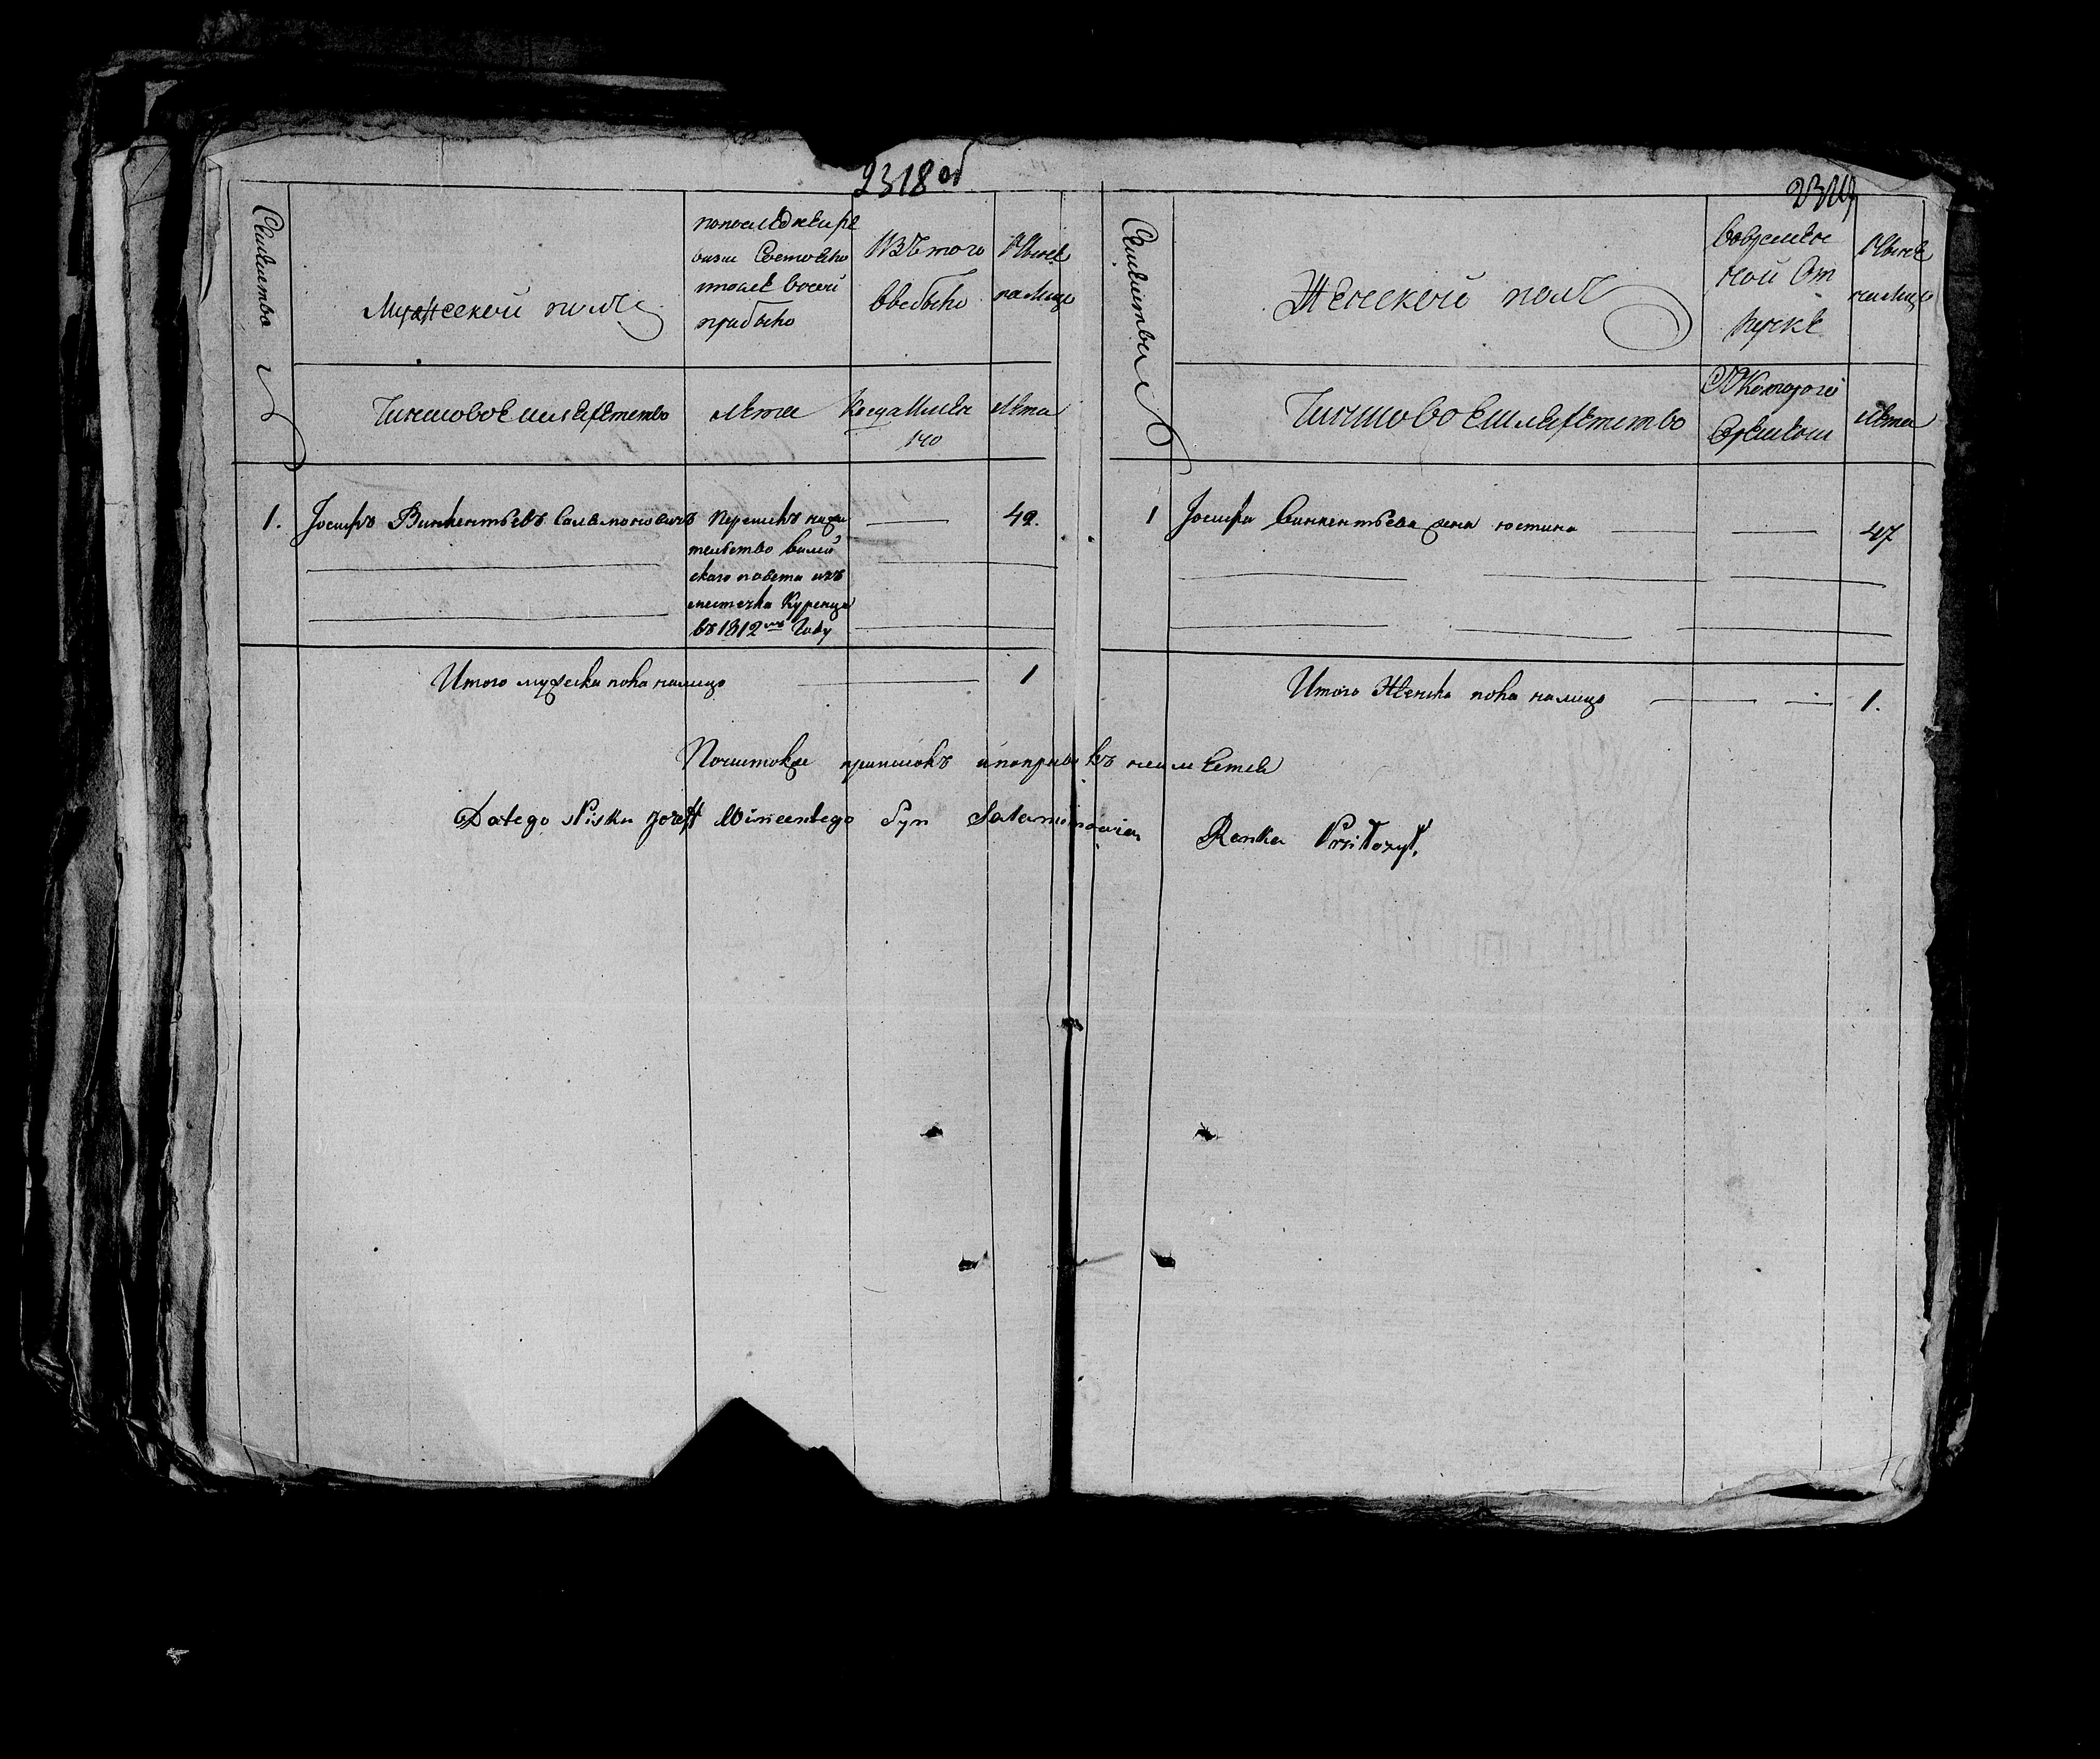 2318 об
2319
Семейство
№
Мужескои полъ
попоследнеире
визии Состояло
ипосле вонои
прибыло
Изътого
выбыло
Ныне
налицо
Чиншовое шляхетство
Лета
Когда Имен
но
Лета
1. Іосифъ Викентьевъ Салямоновичъ
Перешелъ нажи
тельство вилей
скаго повета изъ
местечка Куренца
въ 1812мъ Году
42.
Итого мужеска пола налицо 1
Семейства
№
Женскои полъ
Вовремен
ной От
лучке
Ныне
налицо
Чиншовое шляхетство
СКоторого
Времени
Лета
1 Іосифа Викентьева жена Юстина 47
Итого Женска пола налицо 1.
Почистокъ приписокъ ипоправокъ неимеется
Dotego Spisku Jozeff Wincentego Syn Salamonowicz Renka Prziłozył.